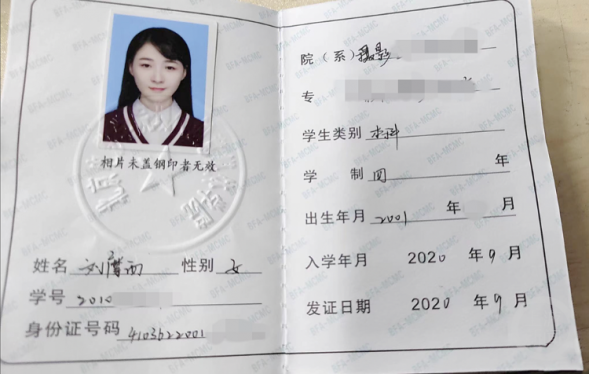 相片未盖钢印者无效
姓名 刘 性别 女
学号 2010
身份证号码 4103622001
院（系）摄影
专
学生类别 本科
学 制 四 年
出生年月 2001 年 月
入学年月 2020 年 9 月
发证日期 2020 年 9 月
BFA-MCMC